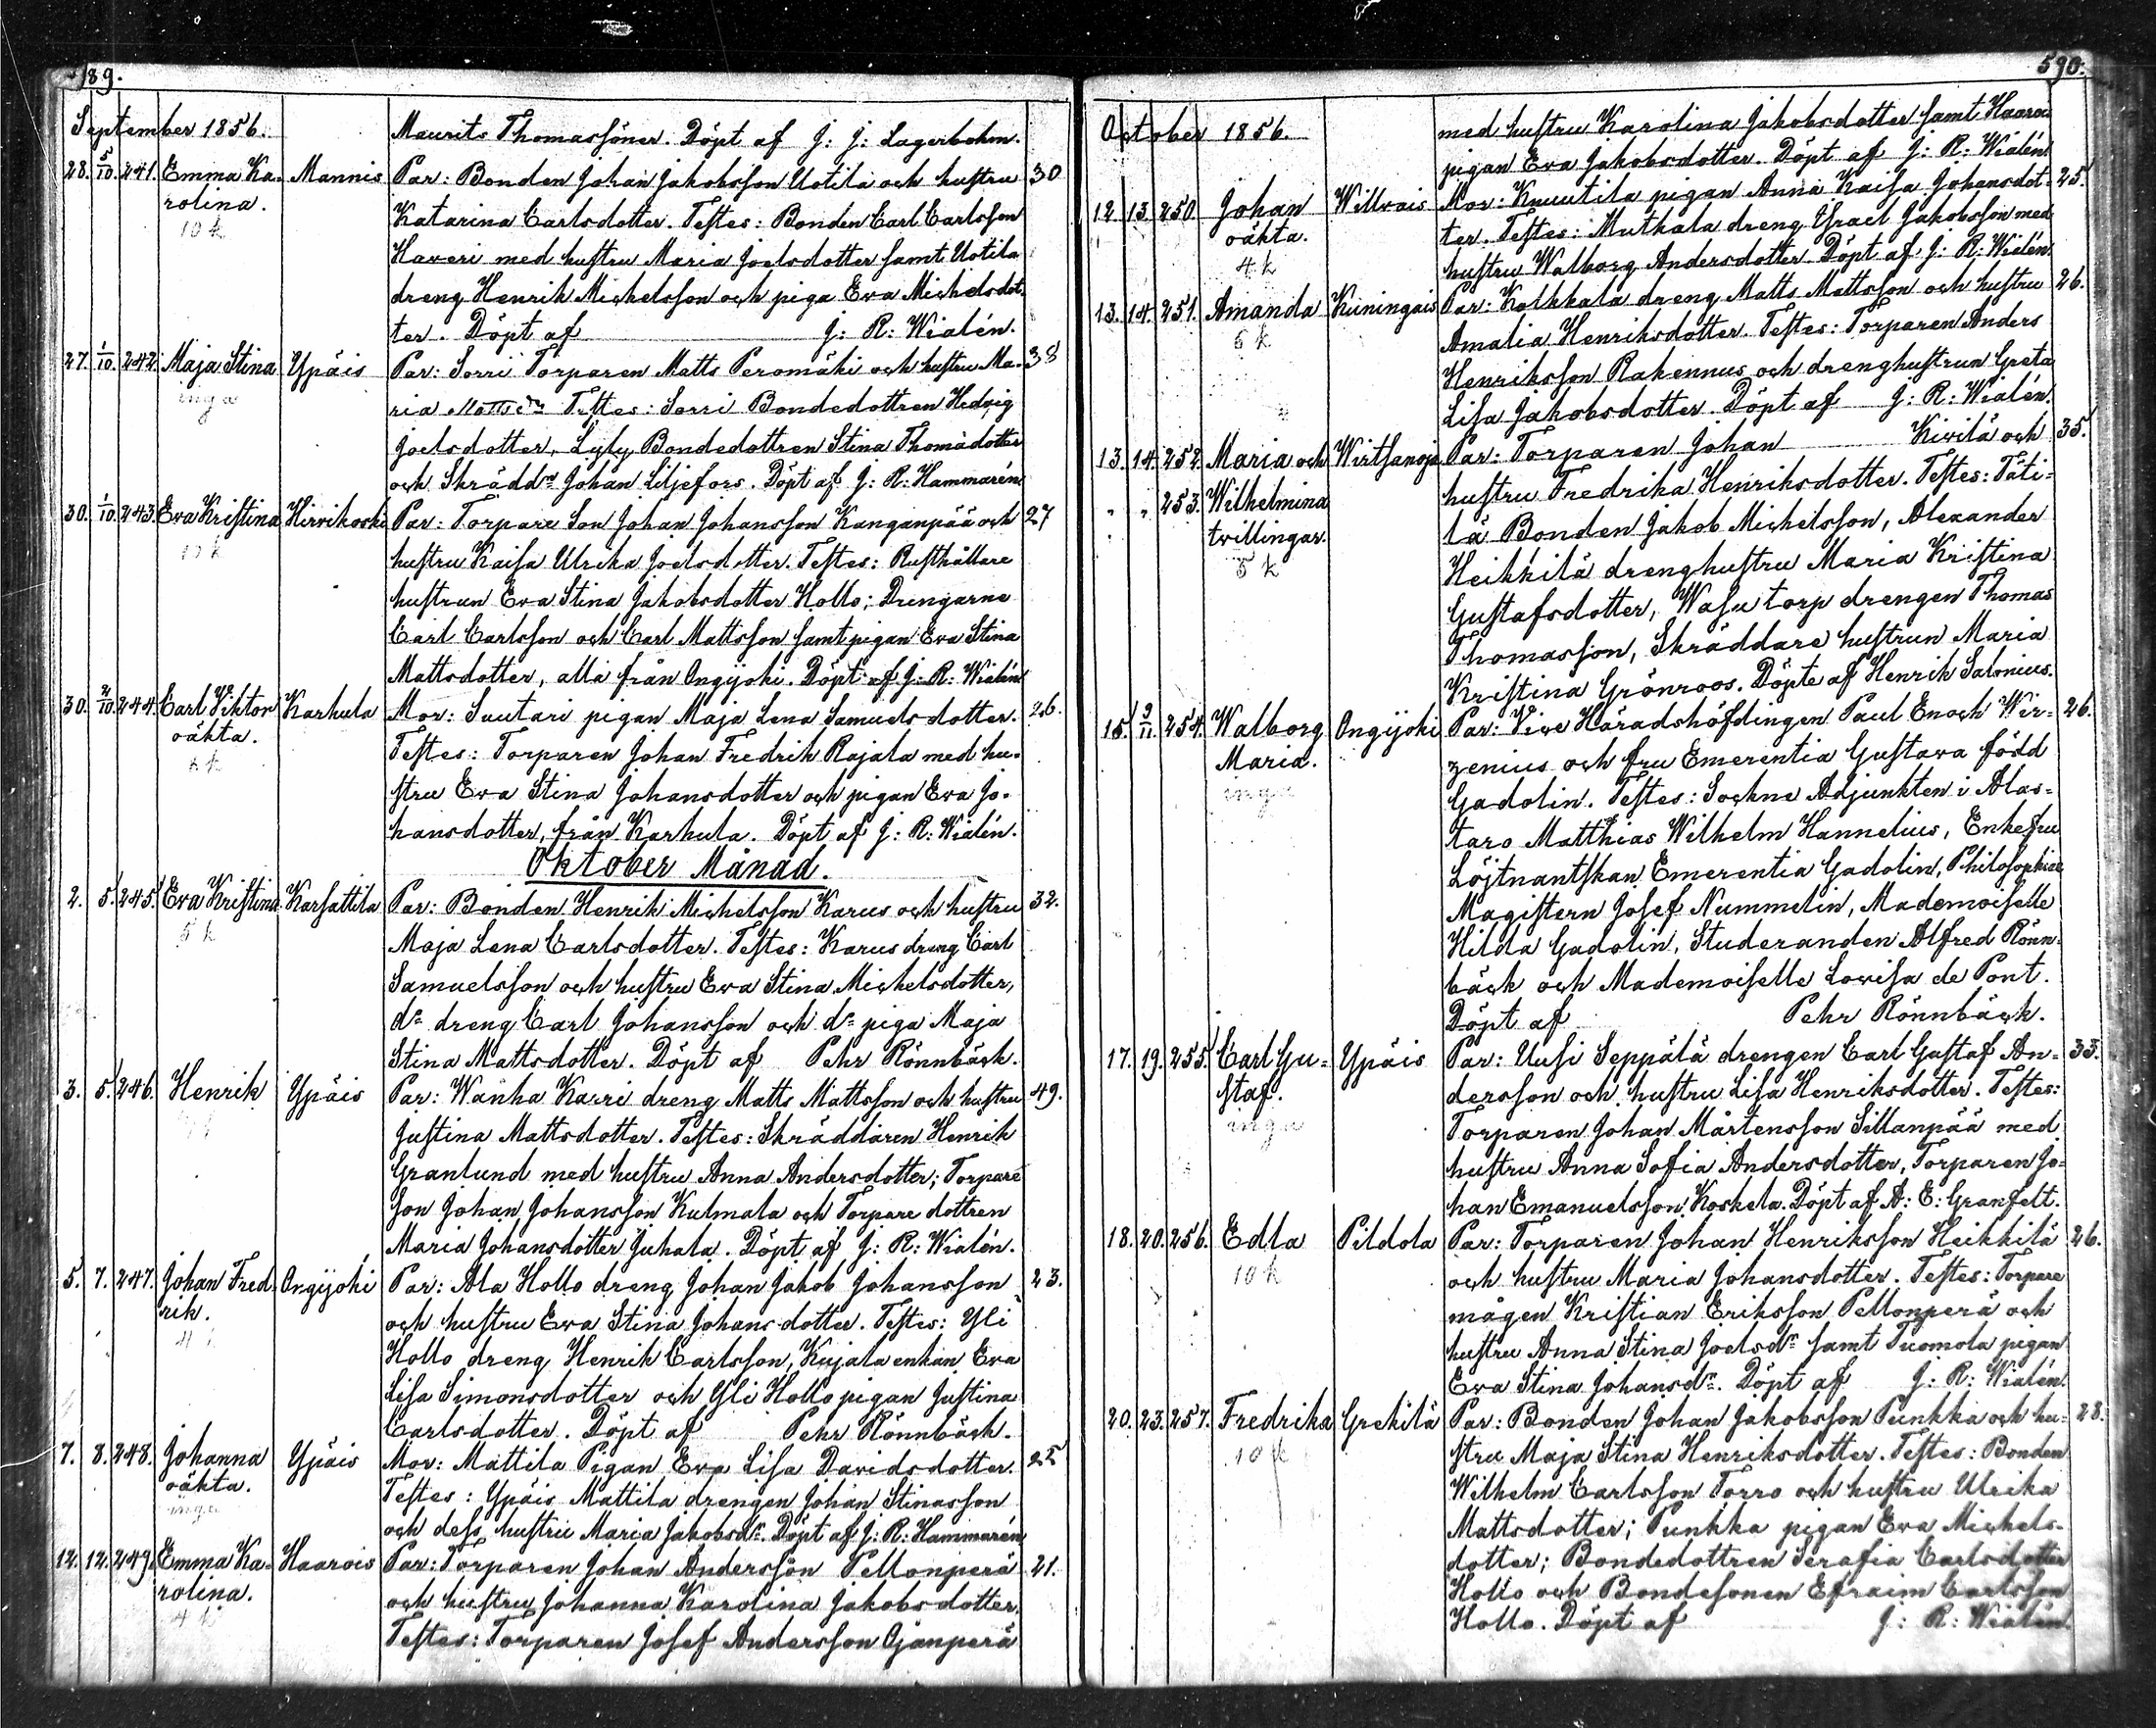 589.
September 1856. Maurits Thomassöner. Döpt af J: J: Lagerbohm.
28. 5/10. 241. Emma Ka- Mannis Par: Bonden Johan Jakobsson Uotila och hustru 30
rolina. Katarina Carlsdotter. Testes: Bonden Carl Carlsson
10 k Haveri med hustru Maria Joelsdotter samt Uotila
dreng Henrik Michelsson och piga Eva Michelsdot-
ter. Döpt af J: R: Wialén.
27. 1/10. 242. Maja Stina Ypäis Par: Sorri Torparen Matts Peromäki och hustru Ma- 38
inga ria Mattsdr Testes: Sorri Bondedottren Hedvig
Joelsdotter, Lyly Bondedottren Stina Thomädotter
och Skräddn Johan Liljefors. Döpt af J: R: Hammarén
30. 1/10. 243. Eva Kristina Hirvikoski Par: Torpare Son Johan Johansson Kanganpää och 27
10 k hustru Kaisa Ulrika Joelsdotter. Testes: Rusthållare
hustrun Eva Stina Jakobsdotter Hollo; Drengarne
Carl Carlsson och Carl Mattsson samt pigan Eva Stina
Mattsdotter, alla från Ongijoki. Döpt af J: R: Wialén
30. 2/10. 244. Carl Viktor Karhula Mor: Suutari pigan Maja Lena Samuelsdotter. 26.
oäkta. Testes: Torparen Johan Fredrik Rajala med hu-
stru Eva Stina Johansdotter och pigan Eva Jo-
hansdotter, från Karhula. Döpt af J: R: Wialén.
Oktober Månad.
2. 5. 245. Eva Kristina Karsattila Par: Bonden Henrik Michelsson Karus och hustru 32.
5 k Maja Lena Carlsdotter. Testes: Karus dreng Carl
Samuelsson och hustru Eva Stina Michelsdotter,
do dreng Carl Johansson och do piga Maja
Stina Mattsdotter. Döpt af Pehr Rönnbäck.
3. 5. 246. Henrik Ypäis Par: Wanha Karri dreng Matts Mattsson och hustru 49.
Justina Mattsdotter. Testes: Skräddaren Henrik
Granlund med hustru Anna Andersdotter; Torpare
son Johan Johansson Kulmala och Torpare dottren
Maria Johansdotter Juhala. Döpt af J: R: Wialén.
5. 7. 247. Johan Fred- Ongijoki Par: Ala Hollo dreng Johan Jakob Johansson 23.
rik. och hustru Eva Stina Johansdotter. Testes: Yli
4 k Hollo dreng Henrik Carlsson, Kujala enkan Eva
Lisa Simonsdotter och Yli Hollo pigan Justina
Carlsdotter. Döpt af Pehr Rönnbäck.
7. 8. 248. Johanna Ypäis Mor: Mattila Pigan Eva Lisa Davidsdotter. 25
oäkta. Testes: Ypäis Mattila drengen Johan Stinasson
inga och dess hustru Maria Jakobsdr. Döpt af J: R: Hammarén
12. 12. 249. Emma Ka- Haarois Par: Torparen Johan Andersson Pellonperä 21.
rolina. och hustru Johanna Karolina Jakobsdotter.
4 k Testes: Torparen Josef Andersson Ojanperä
590.
October 1856. med hustru Karolina Jakobsdotter samt Haarois
pigan Eva Jakobsdotter. Döpt af J: R: Wialén
12. 13. 250. Johan Willvais Mor: Knuutila pigan Anna Kaisa Johansdot- 25.
oäkta. ter. Testes: Muthala dreng Israel Jakobsson med
4 k hustru Walborg Andersdotter. Döpt af J: R: Wialén.
13. 14. 251. Amanda Kuningais Par: Kolkkala dreng Matts Mattsson och hustru 26.
6 k Amalia Henriksdotter. Testes: Torparen Anders
Henriksson Rakennus och drenghustrun Greta
Lisa Jakobsdotter. Döpt af J: R: Wialén.
13. 14. 252. Maria och Wirtsanoja Par: Torparen Johan Kivilä och 35.
" " 253. Wilhelmina hustru Fredrika Henriksdotter. Testes: Täti-
tvillingar. lä Bonden Jakob Michelsson, Alexander
5 k Heikkilä drenghustru Maria Kristina
Gustafsdotter, Wasu torp drengen Thomas
Thomasson, Skräddare hustrun Maria
Kristina Grönroos. Döpte af Henrik Salonius.
15. 9/11. 254. Walborg Ongijoki Par: Vice Häradshöfdingen Paul Enoch Wir- 26.
Maria. zenius och fru Emerentia Gustava född
inga Gadolin. Testes: Sockne Adjunkten i Alas-
taro Matthias Wilhelm Hannelius, Enkefru
Löjtnantskan Emerentia Gadolin, Philosophiæ
Magistern Josef Nummelin, Mademoiselle
Hilda Gadolin, Studeranden Alfred Rönn-
bäck och Mademoiselle Lovisa de Pont.
Döpt af Pehr Rönnbäck.
17. 19. 255. Carl Gu- Ypäis Par: Uusi Seppälä drengen Carl Gustaf An- 33.
staf. dersson och hustru Lisa Henriksdotter. Testes:
inga Torparen Johan Mårtensson Sillanpää med
hustru Anna Sofia Andersdotter, Torparen Jo-
han Emanuelsson Koskela. Döpt af A: E: Granfelt.
18. 20. 256. Edla Pildola Par: Torparen Johan Henriksson Heikkilä 26.
10 k och hustru Maria Johansdotter. Testes: Torpare
mågen Kristian Eriksson Pellonperä och
hustru Anna Stina Joelsdr samt Tuomola pigan
Eva Stina Johansdr. Döpt af J: R: Wialén.
20. 23. 257. Fredrika Grekilä Par: Bonden Johan Jakobsson Punkka och hu- 28.
10 k stru Maja Stina Henriksdotter. Testes: Bonden
Wilhelm Carlsson Torro och hustru Ulrika
Mattsdotter; Punkka pigan Eva Michels-
dotter; Bondedottren Serafia Carlsdotter
Hollo och Bondesonen Efraim Carlsson
Hollo. Döpt af J: R: Wialén.